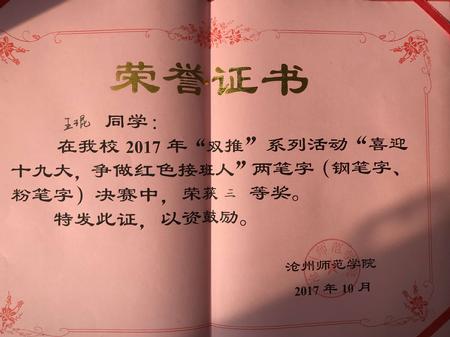 荣誉证书
王琨 同学：
在我校 2017 年“双推”系列活动“喜迎
十九大，争做红色接班人”两笔字（钢笔字、
粉笔字）决赛中，荣获 三 等奖。
特发此证，以资鼓励。
沧州师范学院
2017 年 10 月